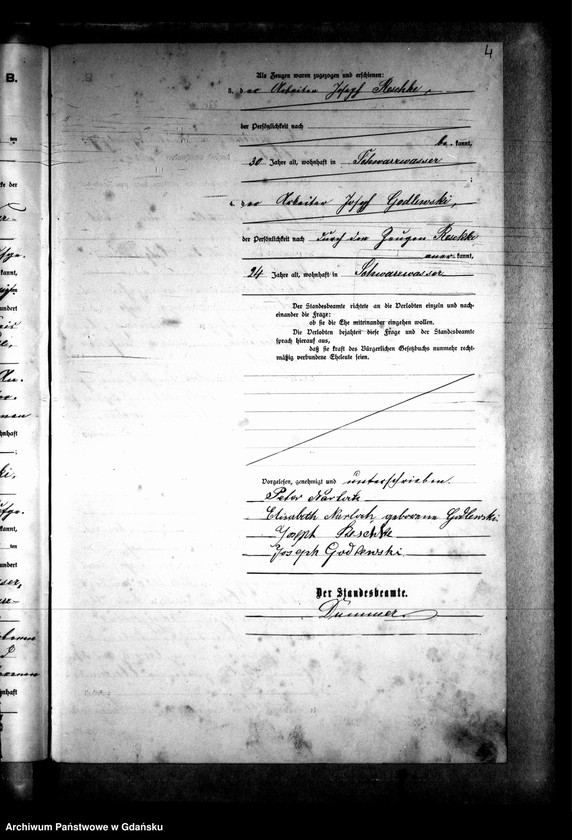 4
B.
Als Zeugen waren zugezogen und erschienen:
3. der Arbeiter Joseph Reschke,
der Persönlichkeit nach
be kannt,
30 Jahre alt, wohnhaft in Schwarzwasser
;
4. der Arbeiter Joseph Godlewski,
der Persönlichkeit nach durch den Zeugen Reschke
aner kannt,
24 Jahre alt, wohnhaft in Schwarzwasser
Der Standesbeamte richtete an die Verlobten einzeln und nach-
einander die Frage:
ob sie die Ehe miteinander eingehen wollen.
Die Verlobten bejahten diese Frage und der Standesbeamte
sprach hierauf aus,
daß sie kraft des Bürgerlichen Gesetzbuchs nunmehr recht-
mäßig verbundene Eheleute seien.
Vorgelesen, genehmigt und unterschrieben.
Peter Narloch
Elisabeth Narloch geborene Godlewski.
Joseph Reschke
Joseph Godlewski
Der Standesbeamte.
Archiwum Państwowe w Gdańsku